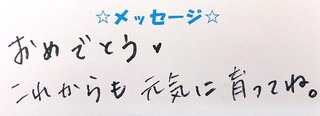 ☆メッセージ☆
おめでとう♥
これからも 元気に 育ってね。